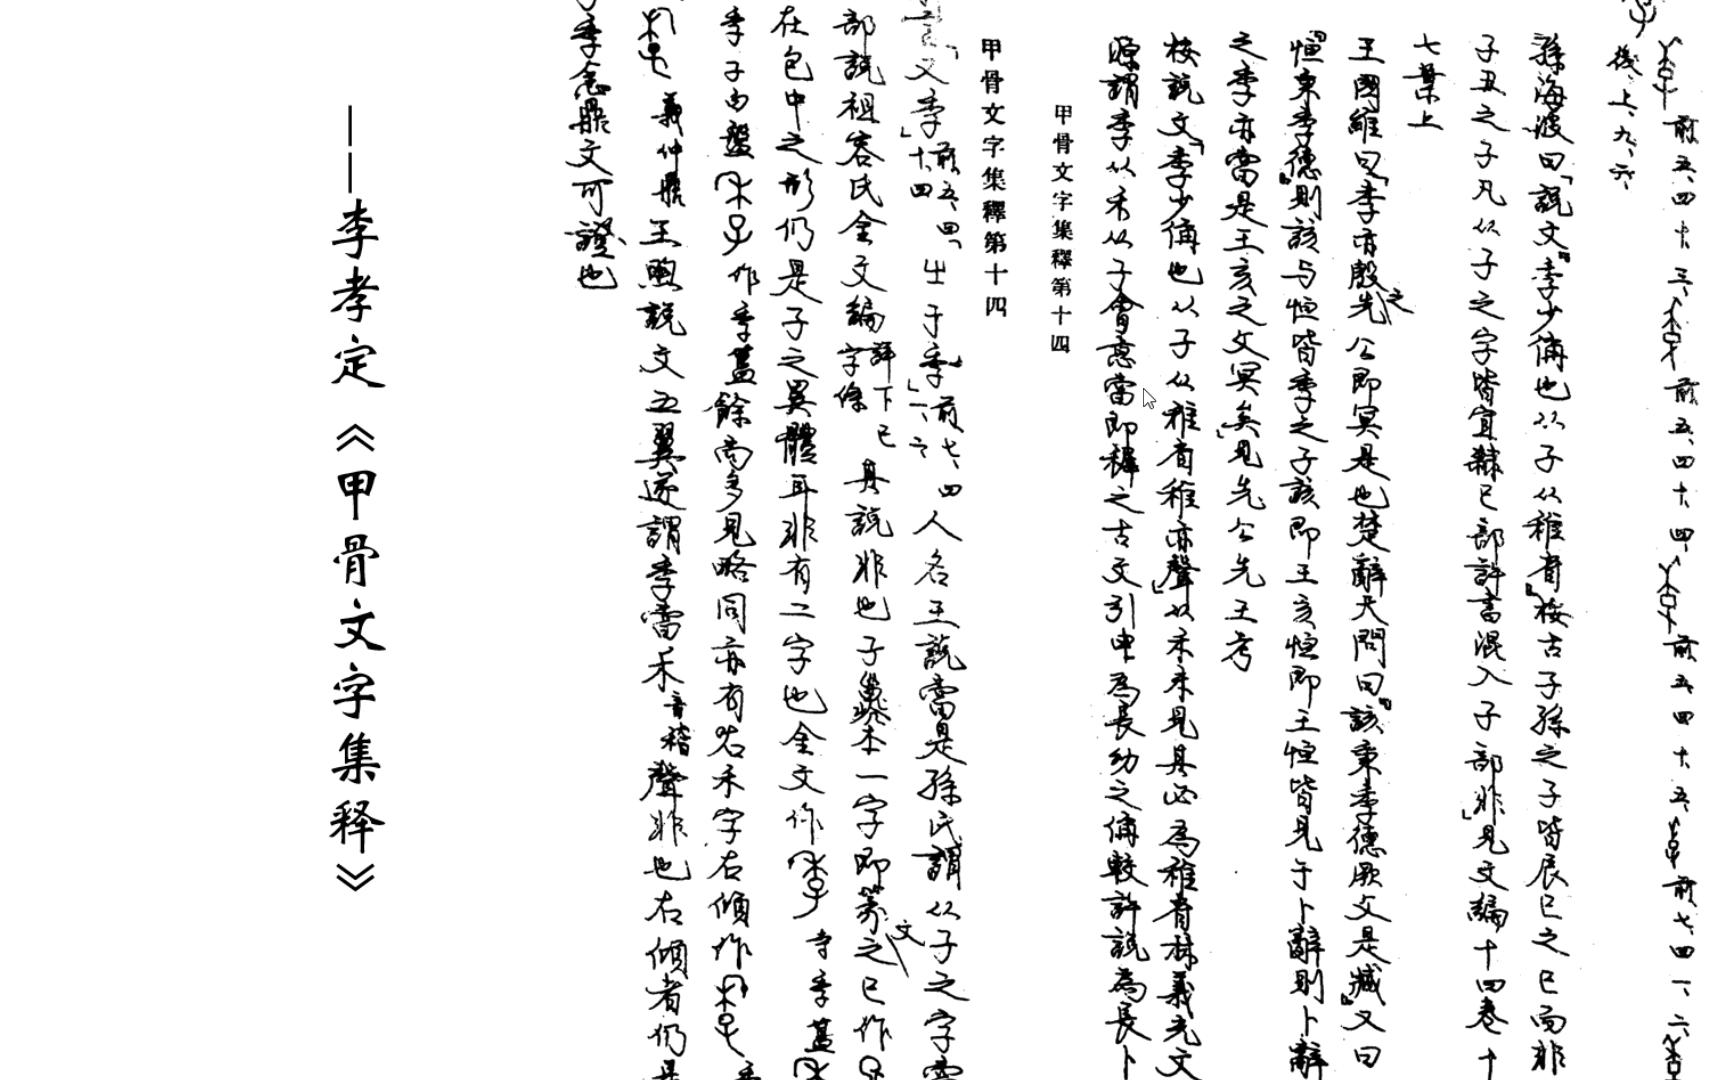 前五、四十、三、前五、四十、四、前五、四十、五、前七、四一、二、
後、上、九、六、
孫海波曰「説文『季少偁也从子从稚省』按古子孫之子皆辰巳之巳而非
子丑之子凡从子之字皆宜隸巳部許書混入子部非」見文編十四卷十
七葉上
王國維曰「季亦殷之先公即冥是也楚辭天問曰『該秉季德厥父是臧』又曰
『恒秉季德』則該与恒皆季之子該即王亥恒即王恒皆見于卜辭則卜辭
之季亦當是王亥之父冥矣」見先公先王考
按説文「季少偁也从子从稚省稚亦聲」从禾未見其必為稚省林義光文
源謂季从禾从子會意當即稺之古文引申為長幼之偁較許説為長卜
甲骨文字集釋第十四
甲骨文字集釋第十四
「又季」前五、四十、四「出于季」前七、四一、二人名王説當是孫氏謂从子之字當
部説祖容氏金文編字條詳下巳其説非也子巢本一字即篆文之巳作
在包中之形仍是子之異體耳非有二字也金文作寺季簋
季子白盤作季簋餘尚多見略同亦有右禾字右傾作
義仲鼎王煦説文五翼遂謂季當禾音稽聲非也右傾者仍是
季悆鼎文可證也
——李孝定《甲骨文字集释》